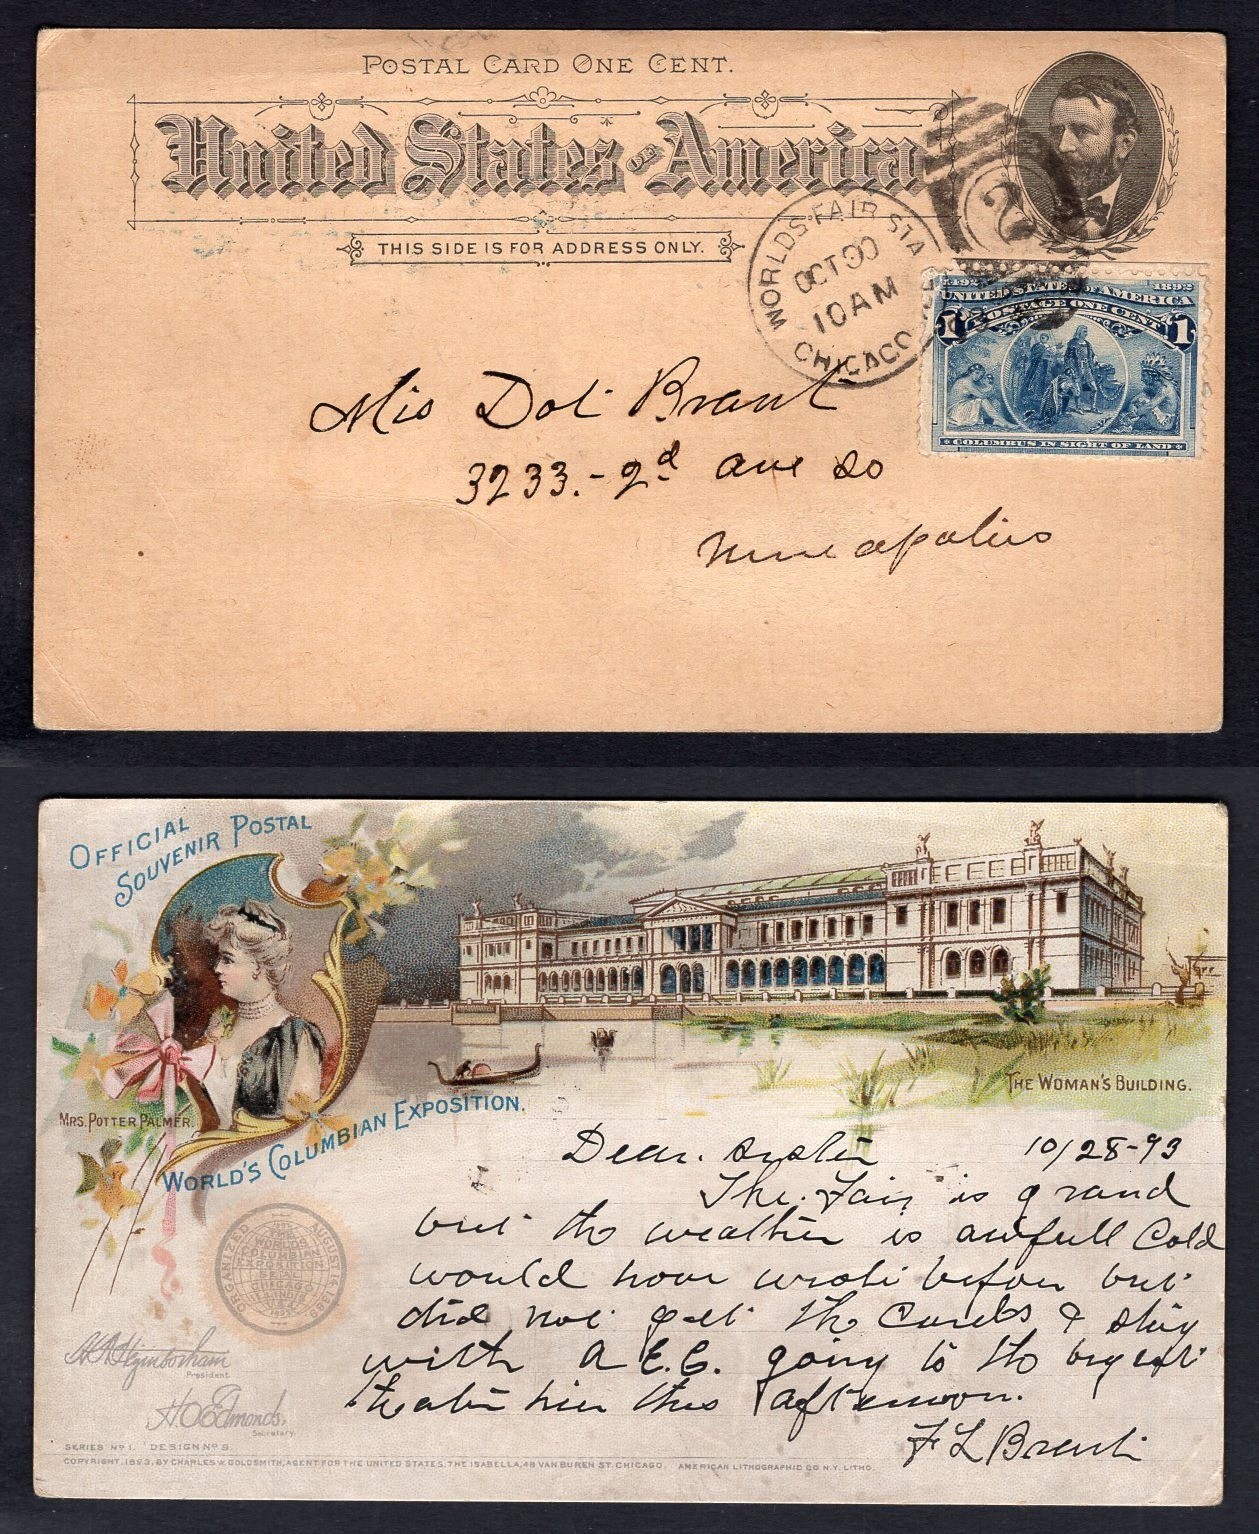 POSTAL CARD ONE CENT.
United States OF America
THIS SIDE IS FOR ADDRESS ONLY.
WORLDS FAIR STA
OCT 30
10 AM
CHICAGO
2
1492 1892
UNITED STATES OF AMERICA
POSTAGE ONE CENT
1 1
COLUMBUS IN SIGHT OF LAND
Miss Dot Brant
3233.- 2d ave So
Minneapolis
OFFICIAL
SOUVENIR POSTAL
MRS. POTTER PALMER.
WORLD'S COLUMBIAN EXPOSITION.
THE WOMAN'S BUILDING.
Dear Sister 10/28-93
The Fair is grand
but the weather is awfull Cold
would have wrote before but
did not get the Cards & stay
with A.E.C. going to the bigest
theater here this afternoon.
F L Brant
ORGANIZED AUGUST 1889
THE
WORLDS
COLUMBIAN
EXPOSITION
CHICAGO
ILLINOIS
H N Higinbotham
President
H O Edmonds.
Secretary
SERIES No 1. DESIGN No 9.
COPYRIGHT, 1893, BY CHARLES W. GOLDSMITH, AGENT FOR THE UNITED STATES, THE ISABELLA, 48 VAN BUREN ST. CHICAGO. AMERICAN LITHOGRAPHIC CO N.Y. LITHO.